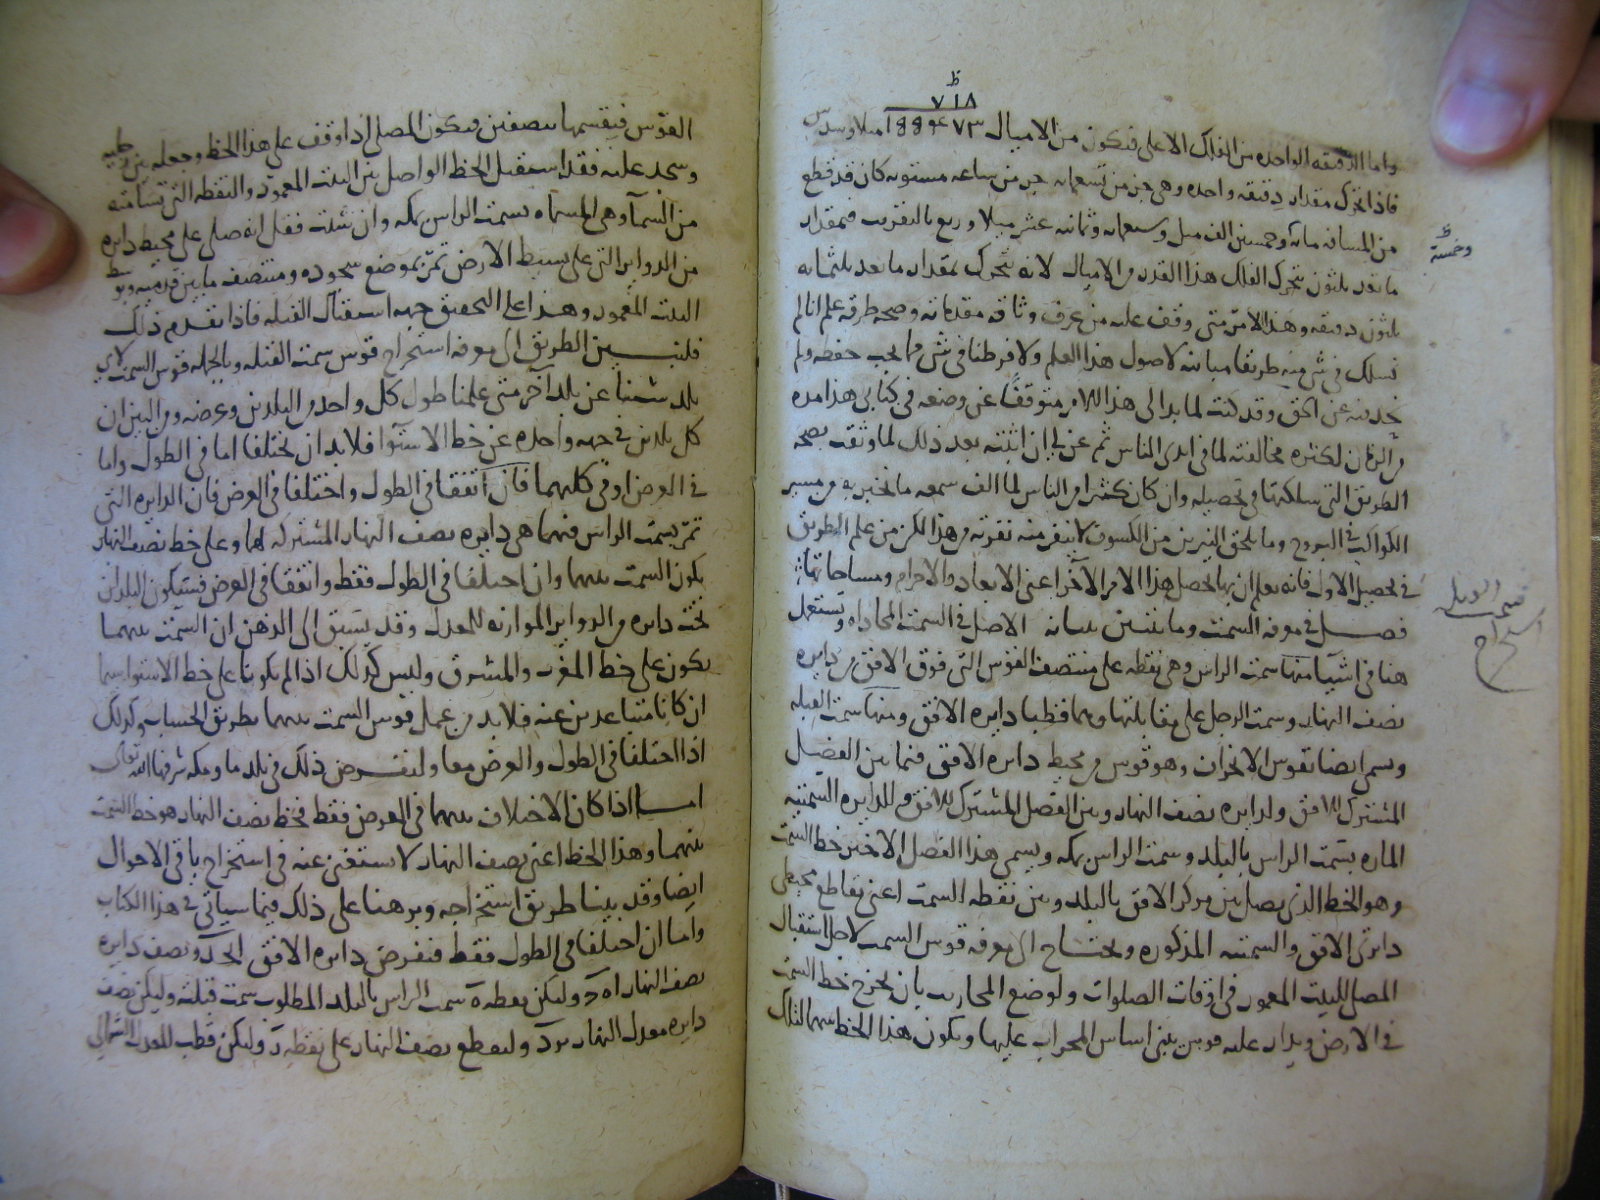 واما الدقيقه الواحده من الفلك الاعلى فيكون من الاميال ميلا وسدس
٧١٨
فاذا تحرك مقدار دقيقه واحده وهى جزء من تسعمايه جزء من ساعه مستويه كان قد قطع
من المسافه مايه وخمسين الف ميل وسبعمايه وثمانيه عشر ميلا وربع بالتقريب فمقدار
وخمسة
ما تعد بلثون يتحرك الفلك هذا القدر من الاميال لانه يتحرك بمقدار ما بعد بلثمايه
بلثون دقيقه وهذا الامر متى وقف عليه من عرف وثاقه مقدماته وصحه طرقه علم انا لم
نسلك فى شى منه طريقا مباينه لاصول هذا العلم ولا فرطنا فى شى مما يجب حفظه ولم
نحد فيه عن الحق وقد كنت لما بدا لى هذا الامر متوقفا عن وضعه فى كتابى هذا مده
من الزمان لكثره مخالفته لما فى ايدى الناس ثم عن لى ان اثبته بعد ذلك لما وثقت بصحه
الطريق التى سلكتها فى تحصيله وان كان كثيرا من الناس لما الف سمعه ما نخبر به من مسير
الكواكب فى البروج وما يلحق النيرين من الكسوف لا ينفر منه نفرته من هذا لكن من علم الطريق
فى تحصيل الاول فانه يعلم ان بها يحصل هذا الامر الاخر اعنى الابعاد والاجرام ومساحاتها
فصل فى معرفه السمت وما يتبين ببيانه الاصل فى السمت المحاذاه ويستعمل
سمت القبله
استخراج
هنا فى اشيآ منها سمت الراس وهى نقطه على منتصف القوس التى فوق الافق من دايره
نصف النهار وسمت الرجل على مقابلتها وهما قطبا دايره الافق ومنها سمت القبله
ويسمى ايضا بقوس الانحراف وهو قوس من محيط دايره الافق فيما بين الفصل
المشترك للافق ولدايره نصف النهار وبين الفصل المشترك للافق وللدايره السمتيه
الماره بسمت الراس بالبلد وسمت الراس بمكه ويسمى هذا الفصل الاخير خط السمت
وهو الخط الذى يصل بين مركز الافق بالبلد وبين نقطه السمت اعنى تقاطع محيطى
دايرتى الافق والسمتيه المذكوره ويحتاج الى معرفه قوس السمت لاجل استقبال
المصلى للبيت المعمور فى اوقات الصلوات ولوضع المحاريب بان يخرج خط السمت
فى الارض ويدار عليه قوس يبنى اساس المحراب عليها ويكون هذا الخط سهما لتلك
القوس فيقسمها بنصفين فيكون المصلى اذا وقف على هذا الخط وجعله بين رجليه
وسجد عليه فقد استقبل الخط الواصل بين البيت المعمور والنقطه التى تسامته
من السمآ وهى المسماه بسمت الراس بمكه وان شئت فقل انه صلى على محيط دايره
من الدواير التى على بسيط الارض تمر بموضع سجوده ومنتصف ما بين قدميه وبوسط
البيت المعمور وهذا على التحقيق جهه استقبال القبله فاذا تقدم ذلك
فلنبين الطريق الى معرفه استخراج قوس سمت القبله وبالجمله قوس السمت لاي
بلد شئنا عن بلد آخر متى علمنا طول كل واحد من البلدين وعرضه ومن البين ان
كل بلدين فى جهه واحده عن خط الاستوا فلا بد ان يختلفا اما فى الطول واما
فى العرض او فى كليهما فان اتفقا فى الطول واختلفا فى العرض فان الدايره التى
تمر بسمت الراس فيهما هى دايره نصف النهار المشتركه لهما وعلى خط نصف النهار
يكون السمت بينهما وان اختلفا فى الطول فقط واتفقا فى العرض فسيكون البلدان
تحت دايره من الدواير الموازيه للمعدل وقد يسبق الى الذهن ان السمت بينهما
يكون على خط المغرب والمشرق وليس كذلك اذا لم يكونا على خط الاستوا سيما
ان كانا متباعدين عنه فلا بد من عمل قوس السمت بينهما بطريق الحساب وكذلك
اذا اختلفا فى الطول والعرض معا ولنفرض ذلك فى بلد ما ومكه شرفها الله تعالى
امـا اذا كان الاختلاف بينهما فى العرض فقط فخط نصف النهار هو خط السمت
بينهما وهذا الخط اعنى نصف النهار لا يستغنى عنه فى استخراج باقى الاحوال
ايضا وقد بينا طريق استخراجه وبرهنا على ذلك فيما سياتى فى هذا الكتاب
واما ان اختلفا فى الطول فقط فنفرض دايره الافق ونصف دايره
نصف النهار ولتكن نقطه سمت الراس بالبلد المطلوب سمت قبلته وليكن نصف
دايره معدل النهار وليقطع نصف النهار على نقطه وليكن قطب المعدل الشمالى